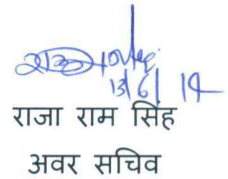 13/6/14
राजा राम सिंह
अवर सचिव